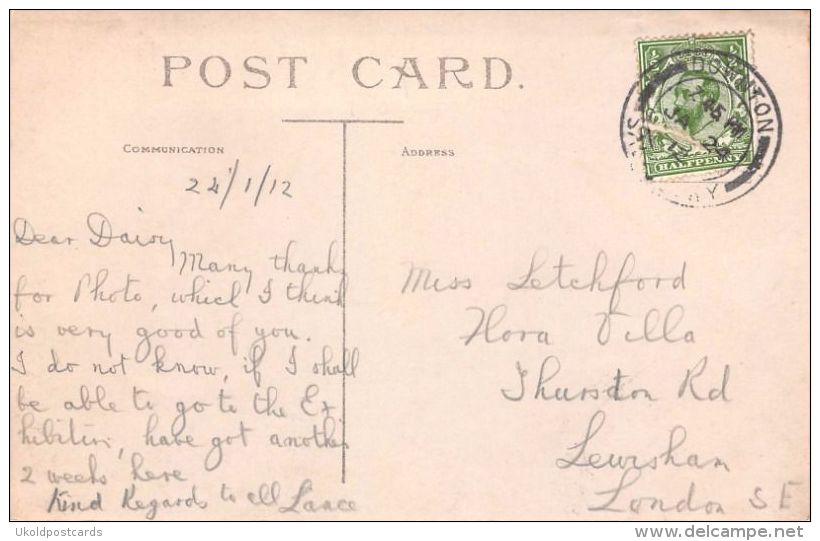 POST CARD.
COMMUNICATION
ADDRESS
HALFPENNY
DOWNTON
7.45 PM
JA 24
12
24/1/12
Dear Daisy
Many thanks
for Photo, which I think
is very good of you.
I do not know, if I shall
be able to go to the Ex
hibition, have got another
2 weeks here
Kind Regards to all Lance
Miss Letchford
Flora Villa
Thurston Rd
Lewisham
London S E
Ukoldpostcards